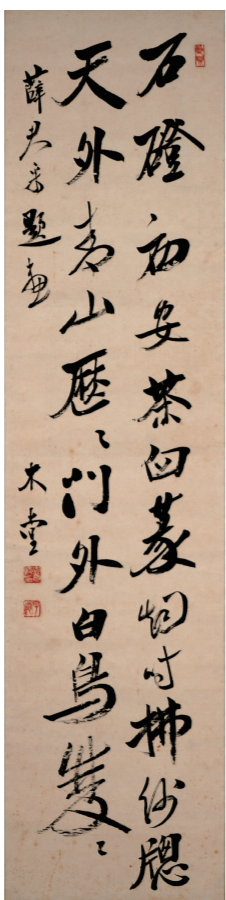 石磴初安茶臼篆烟时拂紗牕
天外青山歴〻門外白鳥雙〻
薛君采題畫
木堂